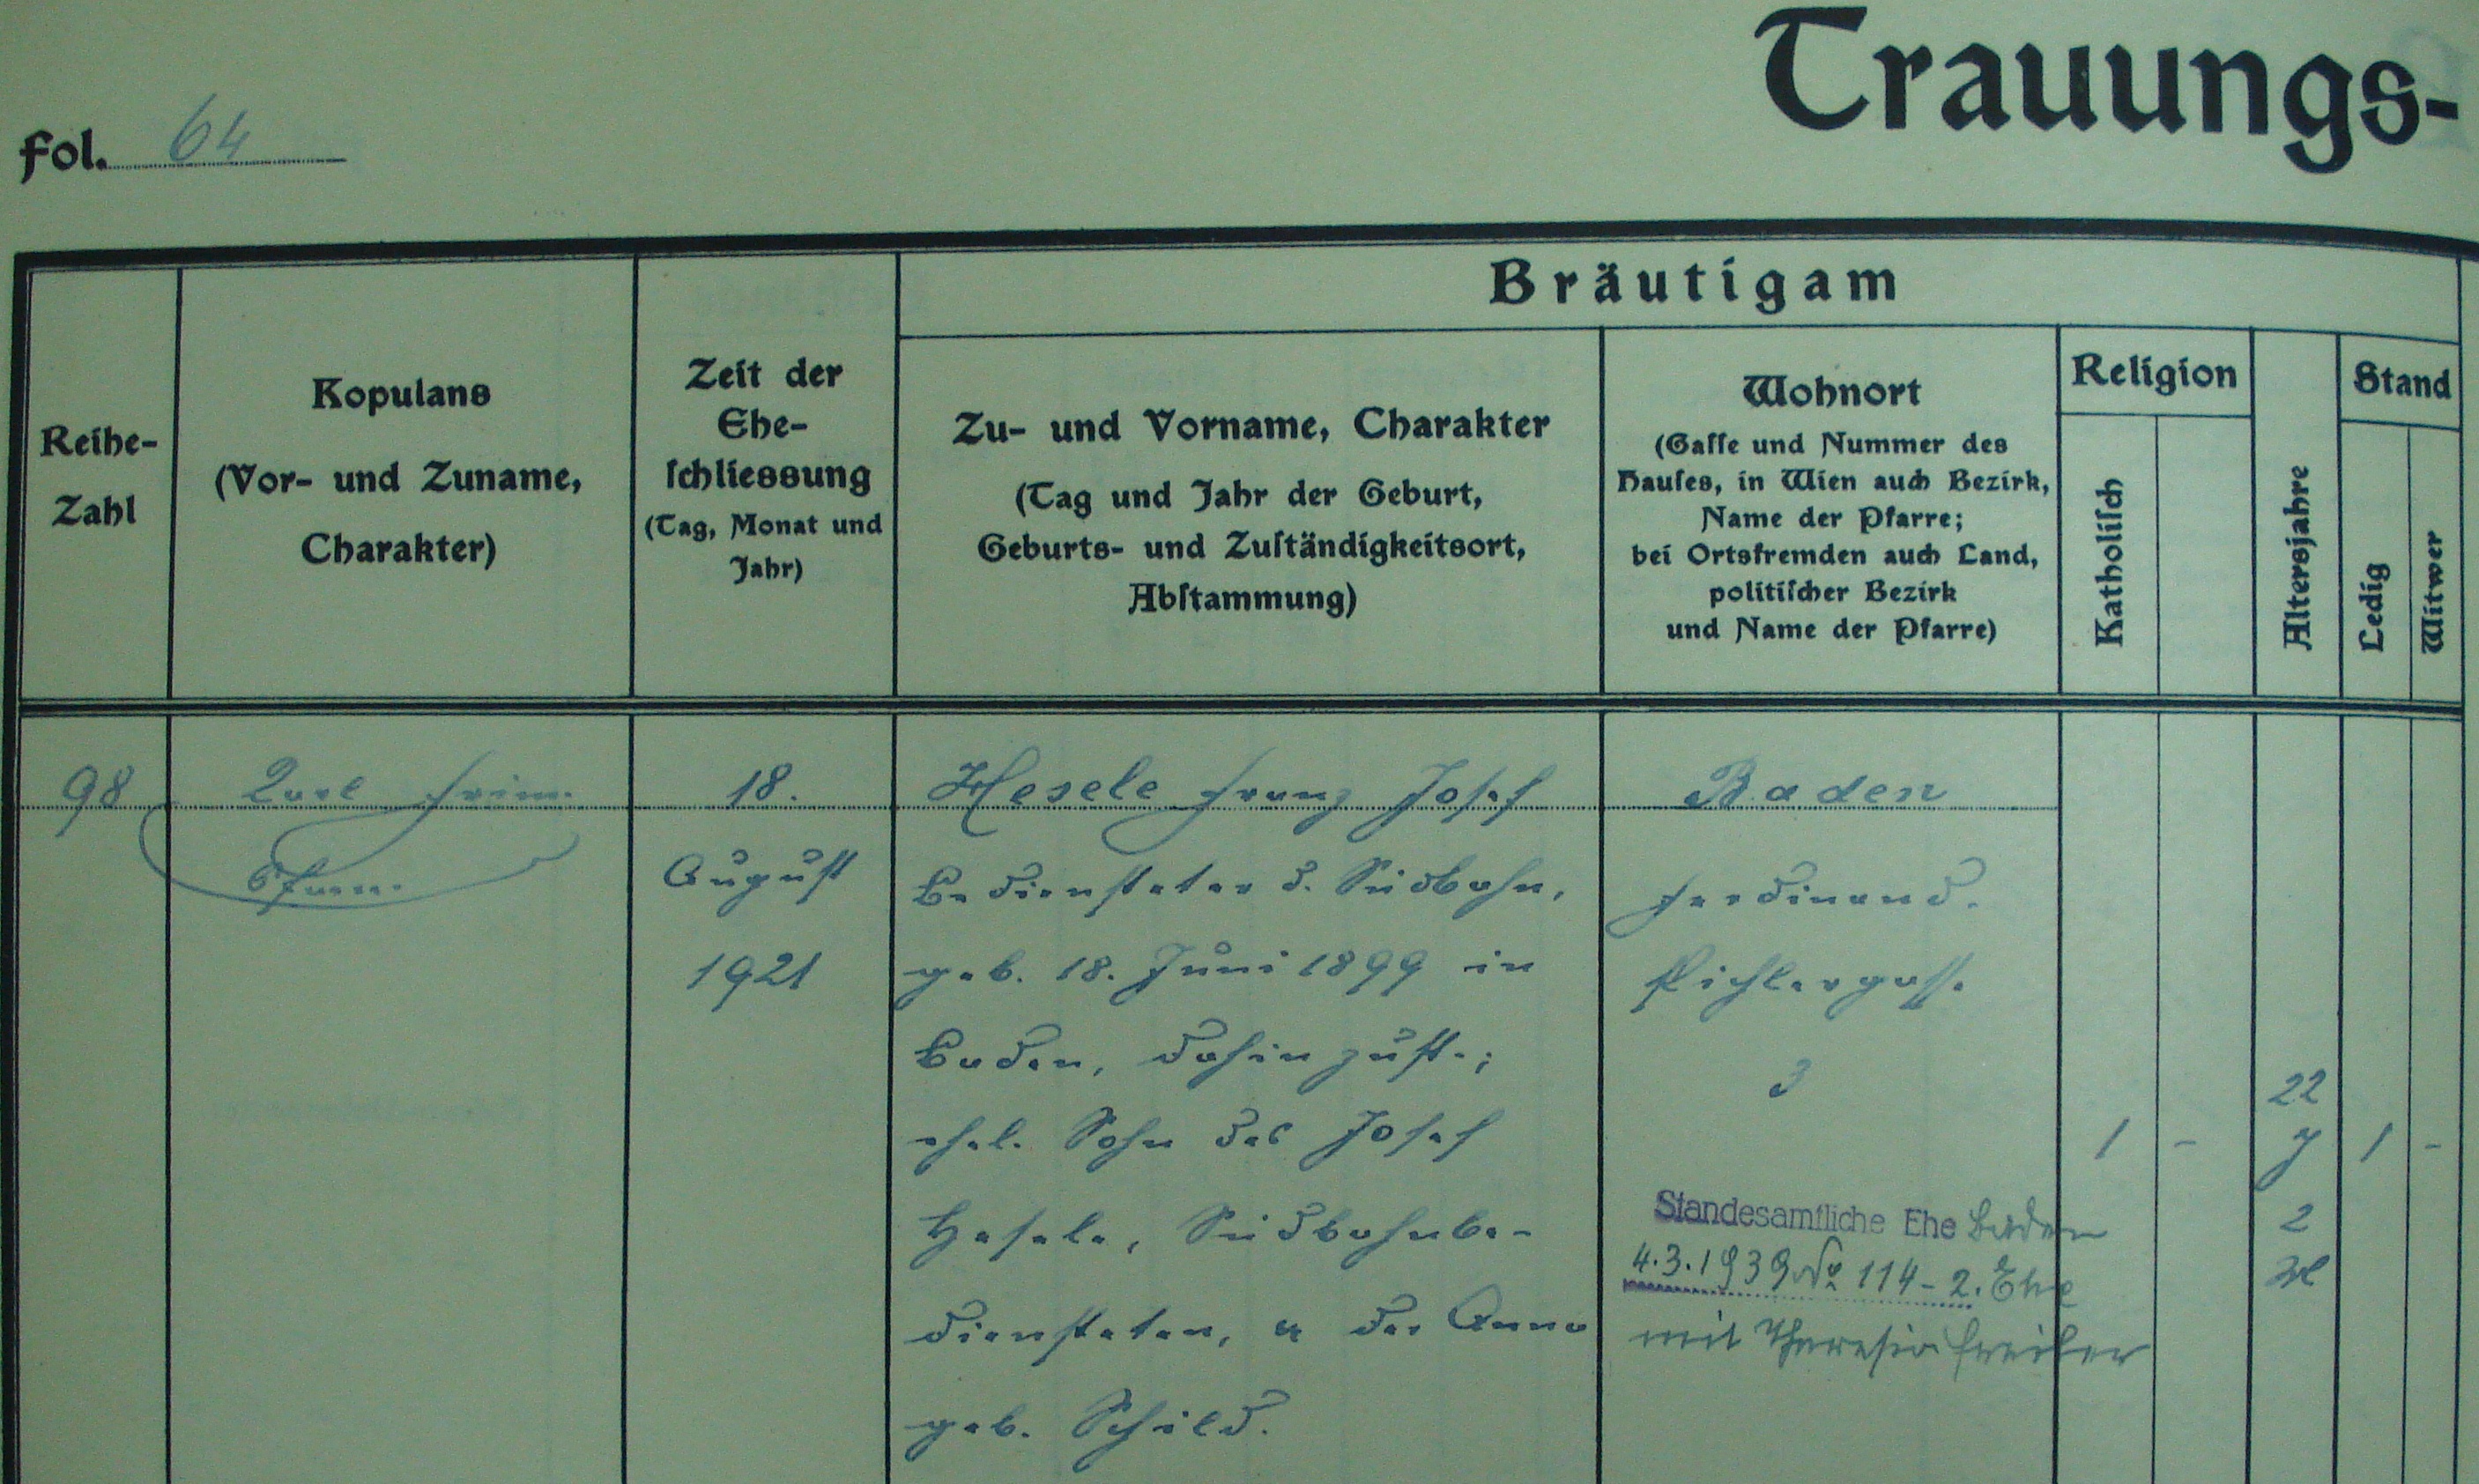 Trauungs-
fol. 64
Bräutigam
Reihe-
Zahl
Kopulans
(Vor- und Zuname,
Charakter)
Zeit der
Ehe-
schliessung
(Tag, Monat und
Jahr)
Zu- und Vorname, Charakter
(Tag und Jahr der Geburt,
Geburts- und Zuständigkeitsort,
Abstammung)
Wohnort
(Gasse und Nummer des
Hauses, in Wien auch Bezirk,
Name der Pfarre;
bei Ortsfremden auch Land,
politischer Bezirk
und Name der Pfarre)
Religion
Katholisch
Altersjahre
Stand
Ledig
Witwer
98
Karl
18.
August
1921
Hesele Franz Josef
Bediensteter d. Südbahn,
geb. 18. Juni 1899 in
Baden, dahin zust.;
ehel. Sohn des Josef
Hesele, Südbahnbe-
diensteten, u der Anna
geb. Schild.
Baden
Ferdinand.
Pichlergasse
3
Standesamtliche Ehe Baden
4.3.1939 No 114 - 2. Ehe
mit Theresia
1
-
22
J
2
M
1
-